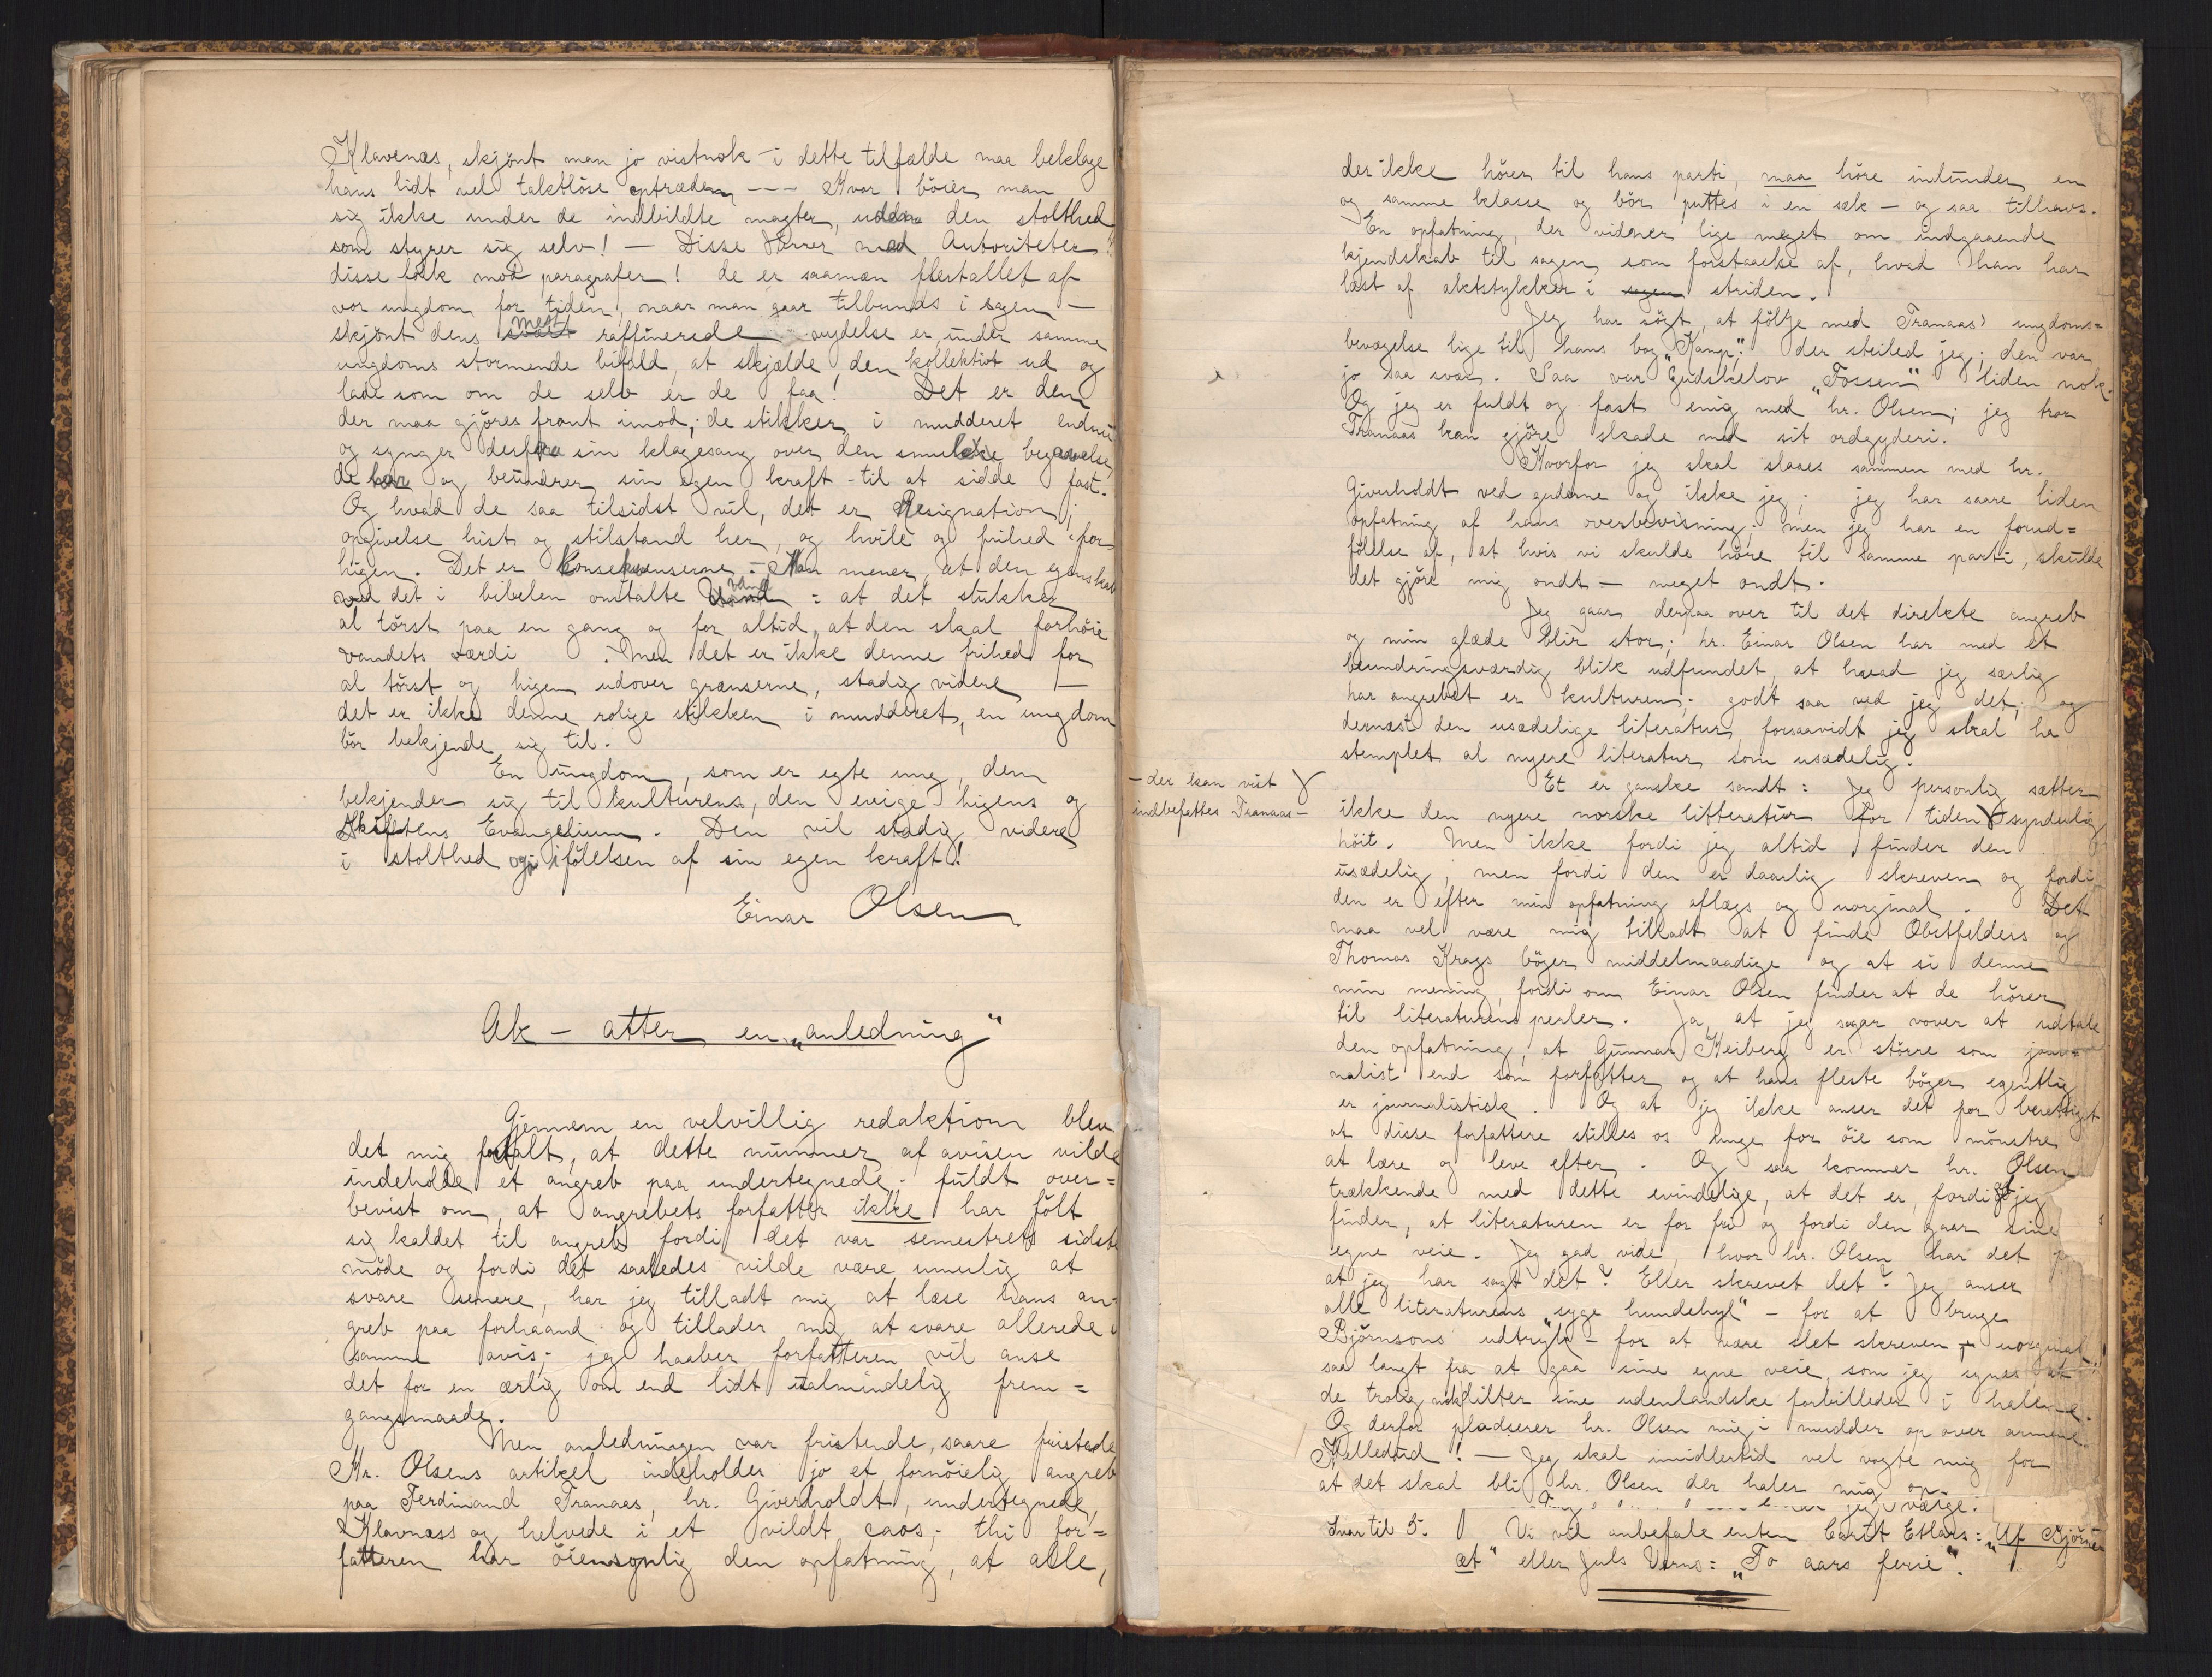 Klavenæs, skjönt man jo vistnok i dette tilfælde maa beklage
hans lidt vel taktlöse optræden --- Hvor böier man
sig ikke under de indbildte magter, uden den stolthed
som styrer sig selv! — Disse Herrer med Autoriteter!
disse folk med paragrafer! de er saamæn flestallet af
vor ungdom for tiden, naar man gaar tilbunds i sagen —
skjönt dens mest raffinerede nydelse er, under samme
ungdoms stormende bifald, at skjælde den kollektivt ud og
lade som om de selv er de faa! Det er dem
der maa gjöres front imod; de stikker i mudderet endnu
og synger derfor sin klagesang over den smule begavelse
de har og beundrer sin egen kraft - til at sidde fast.
Og hvad de saa tilsidst vil, det er Resignation;
opgivelse hist og stilstand her, og hvile og frihed for
higen. Det er Konsekvenserne. - Man mener, at den egenskab
ved det i bibelen omtalte vand = at det slukker
al törst paa en gang og for altid, at den skal forhöie
vandets værdi. Men det er ikke denne frihed for
al törst og higen udover grænserne, stadig videre —
det er ikke denne rolige stikken i mudderet, en ungdom
bör bekjende sig til.
En ungdom, som er egte ung, den
bekjender sig til kulturens, den evige higens og
Skiftens Evangelium. Den vil stadig videre
i stolthed og i fölelsen af sin egen kraft!
Einar Olsen
Ak — atter en „anledning"
Gjennem en velvillig redaktion blev
det mig fortalt, at dette nummer af avisen vilde
indeholde et angreb paa undertegnede; fuldt over=
bevist om, at angrebets forfatter ikke har fölt
sig kaldet til angreb fordi det var semestrets sidste
möde og fordi det saaledes vilde være umulig at
svare senere, har jeg tilladt mig at læse hans an=
greb paa forhaand og tillader mig at svare allerede i
samme avis; jeg haaber forfatteren vil anse
det for en ærlig om end lidt ualmindelig frem=
gangsmaade.
Men anledningen var fristende, saare fristende
Hr. Olsens artikel indeholder jo et fornöielig angreb
paa Ferdinand Tranaas, hr. Giverholdt, undertegnede,
Klavnæss og helvede i et vildt caos; thi for=
fatteren har öiensynlig den opfatning, at alle,
der ikke hörer til hans parti, maa höre indunder en
og samme klasse og bör puttes i en sæk — og saa tilhavs.
En opfatning, der vidner lige meget om indgaaende
kjendskab til sagen som forstaaelse af, hvad han har
læst af aktstykker i sagen striden.
Jeg har sögt at fölge med Tranaas' ungdoms=
bevægelse lige til hans bog „Kamp"; der steiled jeg; den var
jo saa svær. Saa var Gudskelov „Fossen" liden nok.
Og jeg er fuldt og fast enig med hr. Olsen; jeg tror
Tranaas kan gjöre skade med sit ordgyderi.
Hvorfor jeg skal slaaes sammen med hr.
Giverholdt ved guderne og ikke jeg; jeg har saare liden
opfatning af hans overbevisning; men jeg har en forud=
fölelse af, at hvis vi skulde höre til samme parti, skulde
det gjöre mig ondt — meget ondt.
Jeg gaar derpaa over til det direkte angreb
og min glæde blir stor; hr. Einar Olsen har med et
beundringsværdig blik udfundet, at hvad jeg særlig
har angrebet er kulturen; godt saa ved jeg det; og
dernæst den usædelige literatur, forsaavidt jeg skal ha
stemplet al nyere literatur som usædelig.
Et er ganske sandt: Jeg personlig sætter
— der kan vist
indbefattes Tranaas —
ikke den nyere norske litteratur for tiden synderlig
höit. Men ikke fordi jeg altid finder den
usædelig; men fordi den er daarlig skreven og fordi
den er efter min opfatning aflægs og uorginal. Det
maa vel være mig tilladt at finde Obstfelders og
Thomas Krags böger middelmaadige og at si denne
min mening, fordi om Einar Olsen finder at de hörer
til literaturens perler. Ja, at jeg sogar vover at udtale
den opfatning, at Gunnar Heiberg er större som jour=
nalist end som forfatter og at hans fleste böger egentlig
er journalistisk. Og at jeg ikke anser det for berettiget
at disse forfattere stilles os unge for öie som mönstre
at lære og leve efter. Og saa kommer hr. Olsen
trækkende med dette evindelige, at det er, fordi at jeg
finder, at literaturen er for fri og fordi den gaar sine
egne veie. Jeg gad vide, hvor hr. Olsen har det
at jeg har sagt det? Eller skrevet det? Jeg anser
alle literaturens „syge hundehyl" — for at bruge
Björnsons udtryk — for at være slet skreven + uorginal
saa langt fra at gaa sine egne veie, som jeg synes at
de trolig pilter sine udenlandske forbilleder i halene.
Og derfor pladserer hr. Olsen mig i mudder op over armene.
Helledud! — Jeg skal imidlertid vel vogte mig for
at det skal bli hr. Olsen der haler mig op.
jeg vælge.
Svar til 5. Vi vil anbefale enten Carit Etlars: „Af Björne=
æt" eller Juls Verns: „To aars ferie".